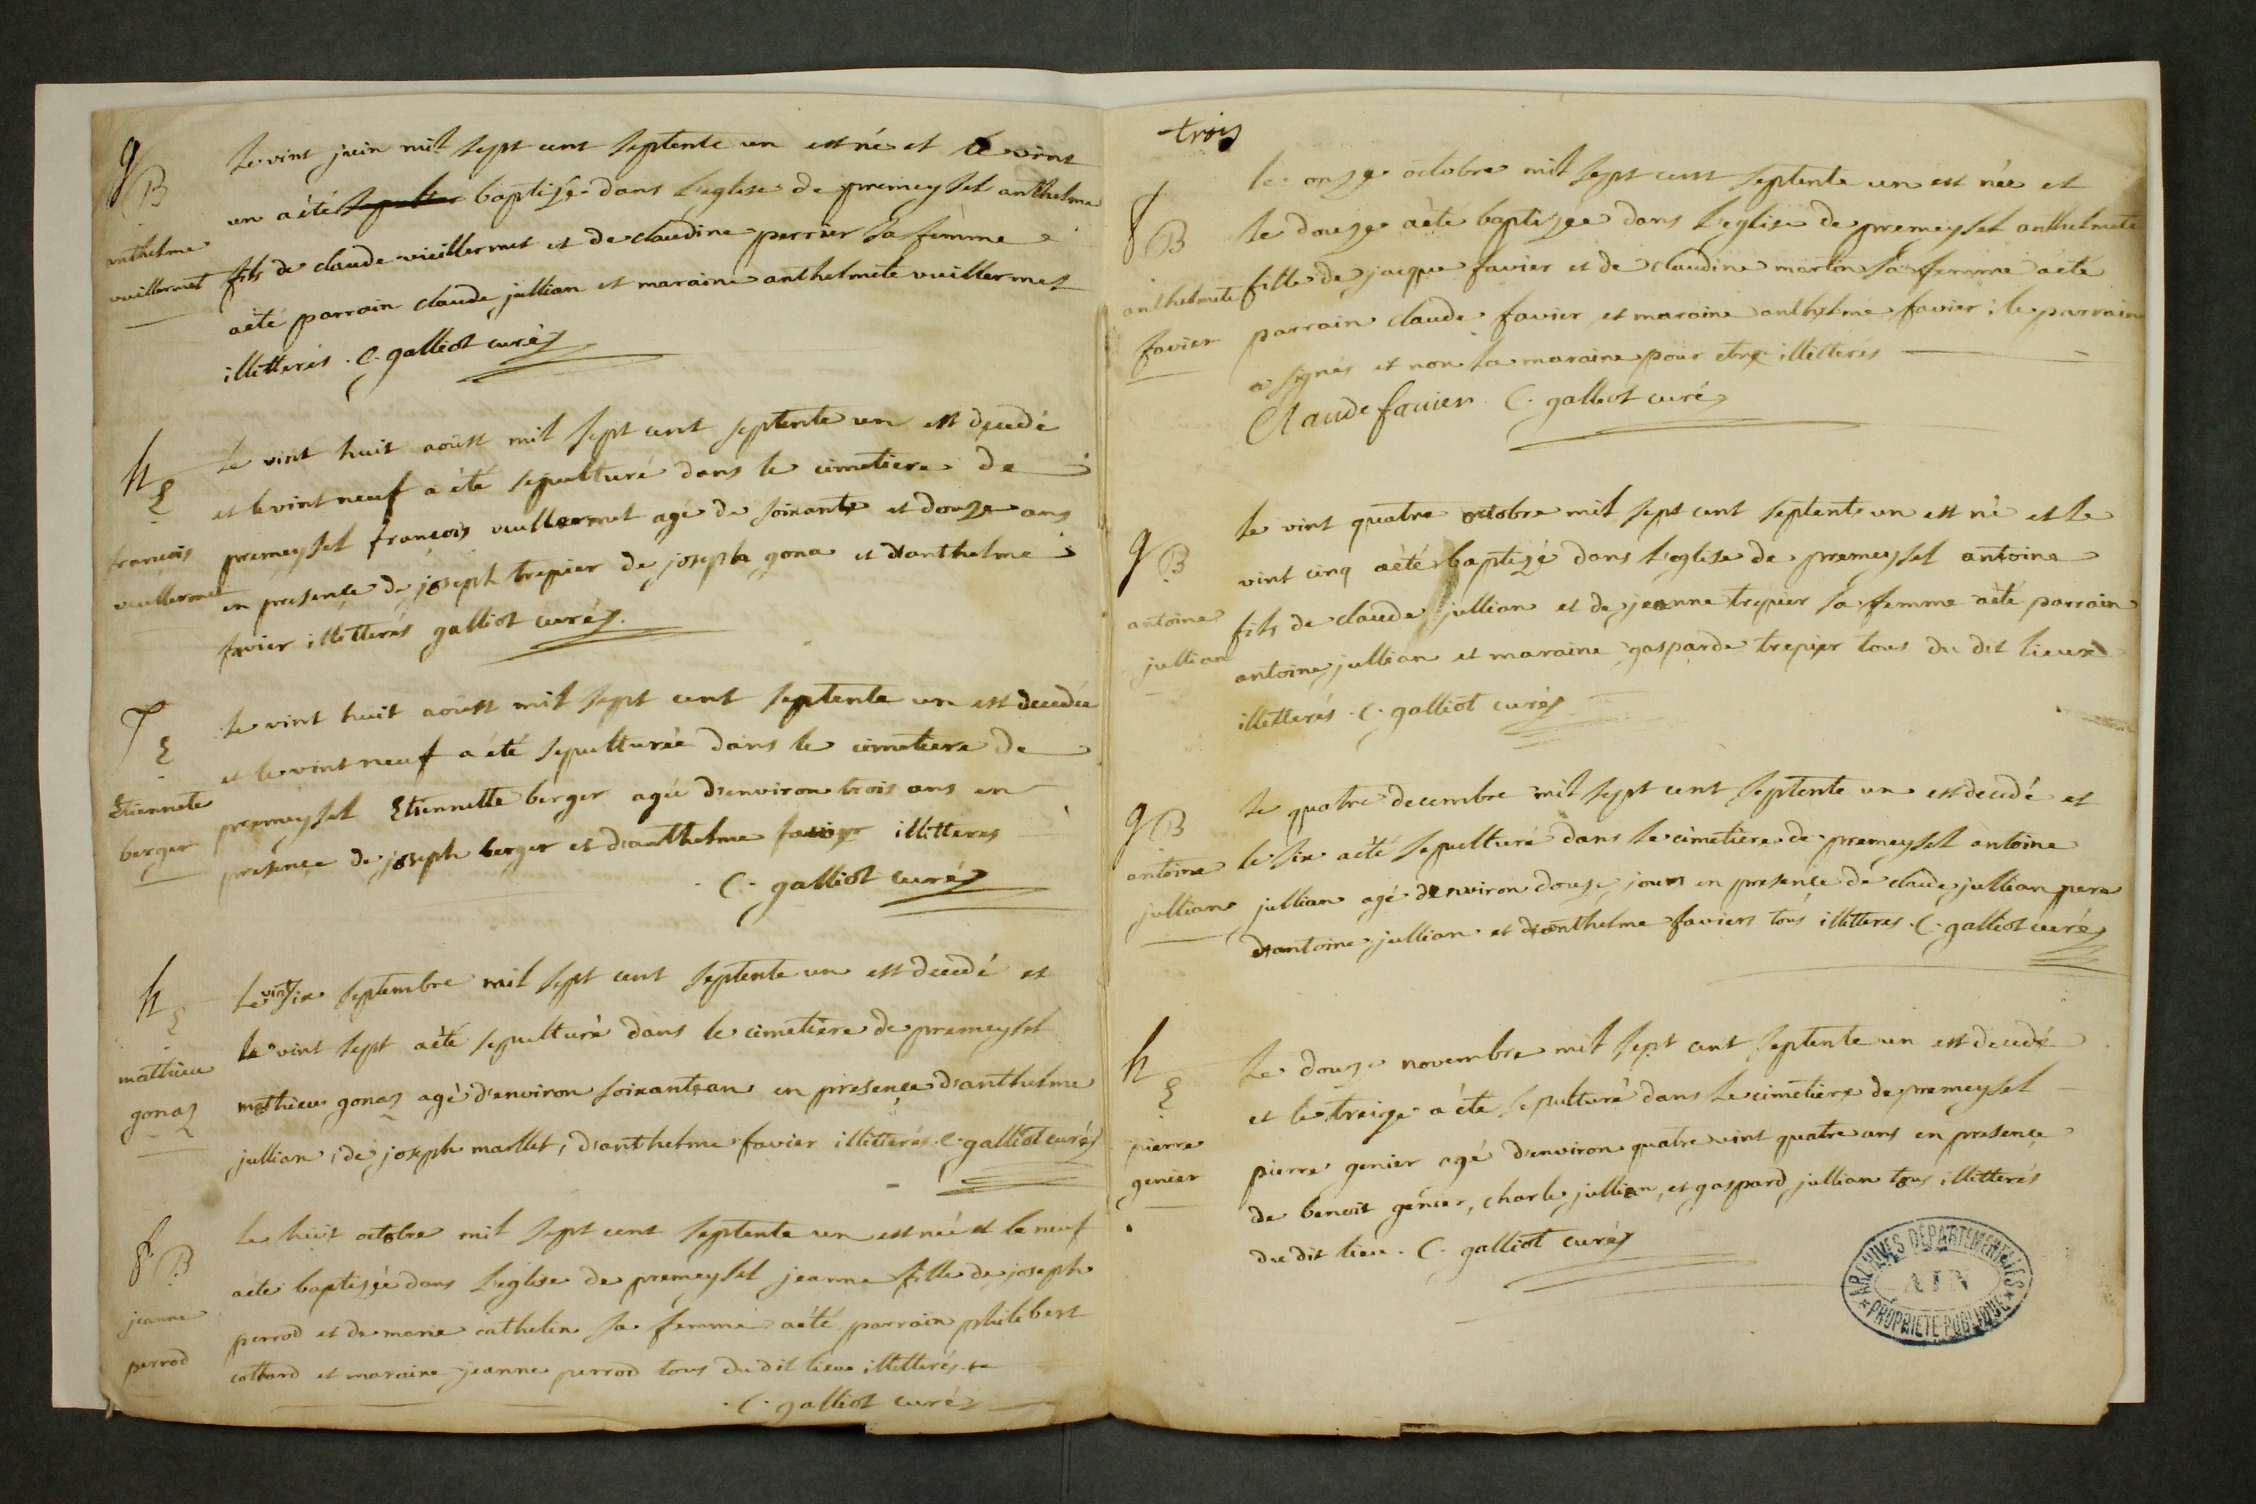 g B
anthelme
vuillermet
Le vint juin mil sept cent septente un est né et le vint
un a èté baptizé dans L'eglise de premeyſel anthelme
fils de claude vuillermet et de claudine perrier sa fèmme
a èté parrain claude jullian et maraine anthelmete vuillermet
illitterés . C. galliot curéz
h
E
francois
vuullermet
Le vint huit aoust mil sept cent septente un est decedé
et le vint neuf a èté sepulturé dans le cimetiere de
premeyſel francois vuullermet agé de soixante et douze ans
en presence de joseph trepier de joseph gona et d'anthelme
favier illitterés galliot curéz.
E
Etiennete
berger
Le vint huit aoust mil sept cent septente un est decedée
et le vint neuf a été sepulturée dans le cimetiere de
premeyſel Etiennette berger agée d'environ trois ans en
presence de joseph berger et d'anthelme favier illitteres
C. galliot curéz
h
E
mathieu
gonaz
Le vint six septembre mil sept cent septente un est decedé et
le vint sept a èté sepulturé dans le cimetiere de premeyſel
mathieu gonaz agé d'environ soixante an en presence d'anthelme
jullian , de joseph marllet , d'anthelme favier illitterés C. galliot curéz
f B
jeanne
perrod
Le huit octobre mil sept cent septente un est neé et le neuf
a èté baptizée dans L'eglise de premeyſel jeanne fille de joseph
perrod et de marie cathelin sa femme a été parrain philibert
cottard et maraine jeanne perrod tous du dit lieu illitterés
C. galliot curéz
trois
f B
anthelmete
favier
le onze octobre mil sept cent septente un est née et
le douze a èté baptizée dans L'eglise de premeyſel anthelmete
fille de jacque favier et de claudine martin sa femme a été
parrain claude favier et maraine anthelme favier ; le parrain
a signés et non la maraine pour etre illitterés
Claude favier C. galliot curéz
g B
antoine
jullian
le vint quatre octobre mil sept cent septente un est né et le
vint cinq a èté baptizé dans L'eglise de premeyſel antoine
fils de claude jullian et de jeanne trepier sa femme a èté parrain
antoine jullian et maraine gasparde trepier tous du dit lieux
illitterés . C. galliot curéz
g B
antoine
jullian
Le quatre decembre mil sept cent septente un est decedé et
le six a èté sepulturé dans le cimetiere de premeyſel antoine
jullian agé d'environ douze jours en presence de claude jullian pere
d'antoine jullian et d'anthelme faviers tous illitteres . C. galliot curéz
h
E
pierre
genier
Le douze novembre mil sept cent septente un est decedé
et le treize a èté sepulturé dans Le cimetiere de premeyſel
pierre genier agé d'environ quatre vint quatre ans en presence
de benoit gencer, charle jullian, et gaspard jullian tous illitterés
du dit lieu . C. galliot curéz
ARCHIVES DÉPARTEMENTALES
AIN
PROPRIÉTÉ PUBLIQUE